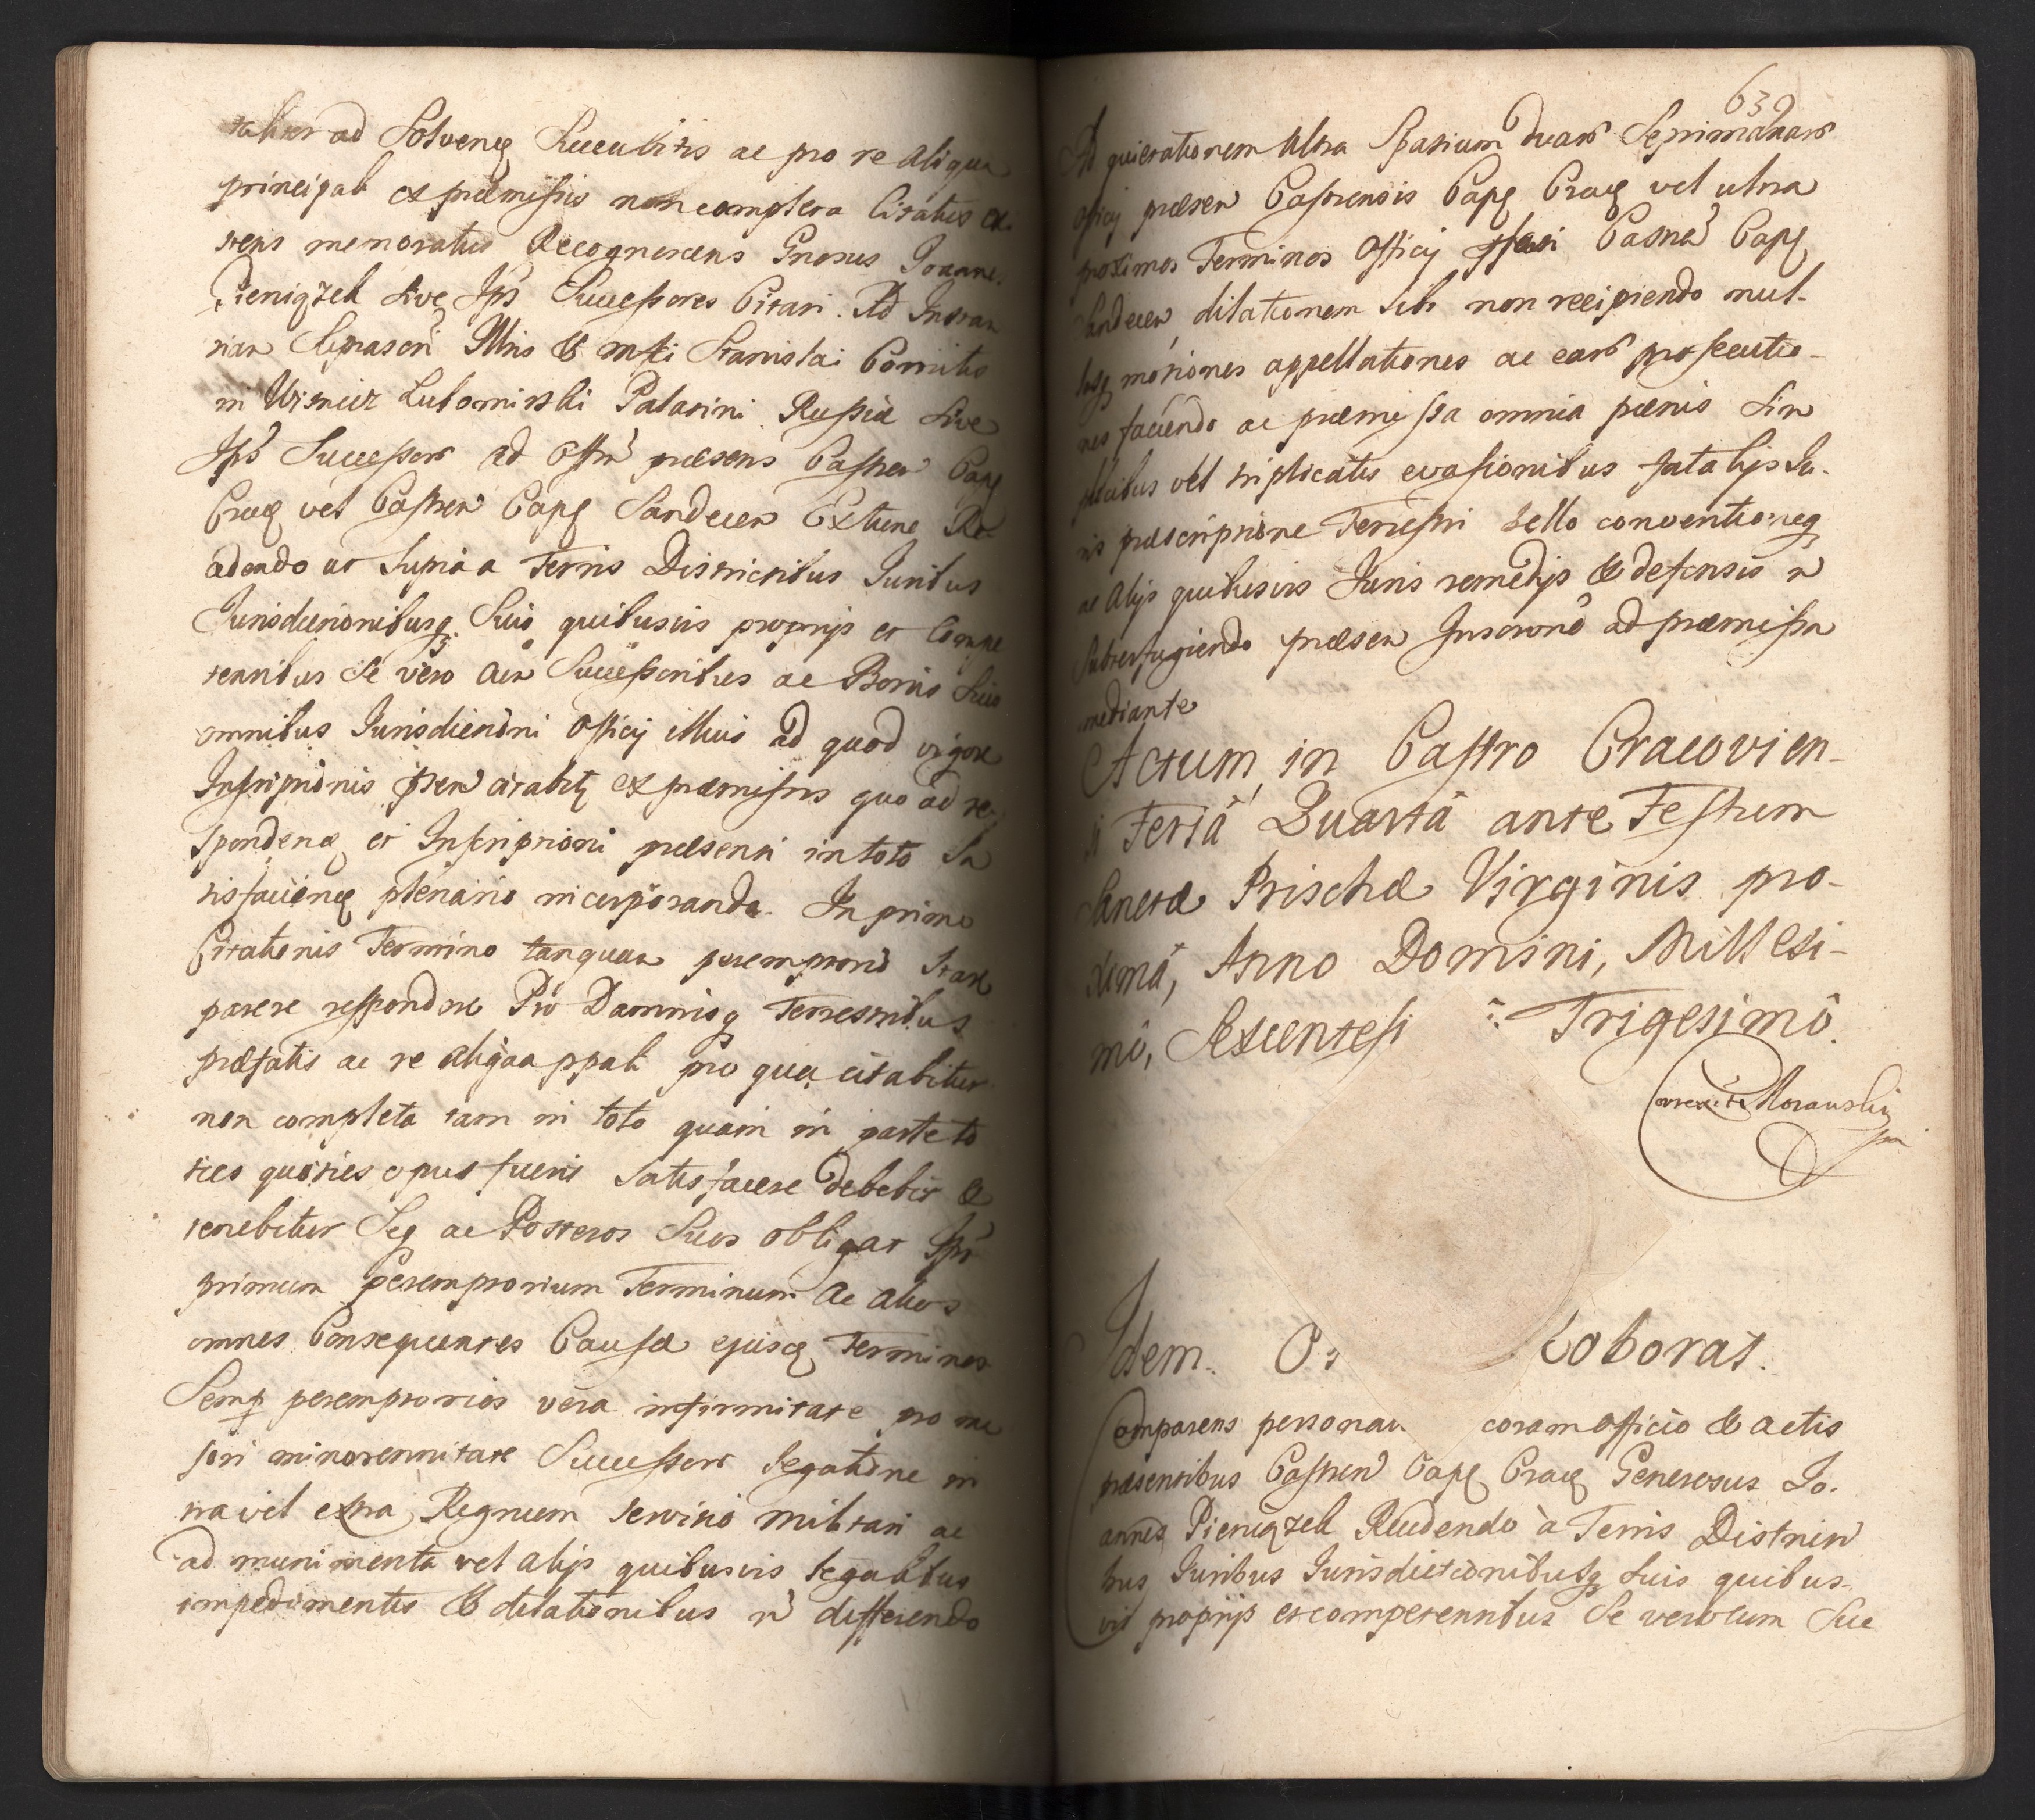 taliter ad Solvenq Succubitis ac pro re aliqua
principali ex præmissis non completa Citatus exi
stens memoratus Recognoscens Gnosus Joanne
Pieniązek sive Ips Successores Citari. Ad Instan
tian Suprascri Illris & mfci Stanislai Comitis
in Wisnicz Lubomirski Palatini Russiæ sive
Ips Successor ad Offm præsens Castren Capq
Cracq vel Castren Capq Sandecen Extunc Re
cedendo ut Supra a Terris Districtibus Juribus
Jurisdictionibusq Suis quibusvis proprijs et Compe
tentibus Se vero cum Successoribus ac Bonis Suis
omnibus Jurisdictioni Officij illius ad quod vigore
Inscriptionis psen citabitq ex præmissis quo ad re
spondenq et Inscriptioni præsenti in toto Sa
tisfacienq plenarie incorporando. In primo
Citationis Termino tanquam peremptorio Stare
parere respondere Pro Damnisq Terrestribus
præfatis ac re aliqua ppali pro qua citabitur
non completa tam in toto quam in parte to
ties quoties opus fuerit Satisfacere debebit &
tenebitur Seq ac Posteros Suos obligat Ips
primum peremptorium Terminum ac alios
omnes Consequentes Causæ ejusq Terminos
Semp peremptorios vera infirmitate pro ma
jori minorennitate Successor legatione in
tra vel extra Regnum servitio militari ac
ad munimenta vel alijs quibusvis legalibus
impedimentis & dilationibus n differendo
639
Ad quietationem ultra Spatium duar Septimanar
Officij præsen Castrensis Capq Cracq vel ultra
proximos Terminos Officij Castren Capq
Sandecen dilationem sibi non recipiendo nul-
lasq motiones appellationes ac ear prosecutio-
nes faciendo ac præmissa omnia pœnis Sim
plicibus vel triplicatis evasionibus fatalijs Ju-
ris præscriptione Terrestri bello conventioneq
ac alijs quibusvis Juris remedijs & defensis n
Subterfugiendo præsen Inscrone ad præmissa
mediante
Actum in Castro Cracovien-
si Feriâ Quartâ ante Festum
Sanctæ Prischæ Virginis pro-
ximâ, Anno Domini, Millesi-
mô, Sexcentesi Trigesimô.
Correxit Morawski
Idem. Roborat.
Comparens personal coram Officio & actis
præsentibus Castren Capq Cracq Generosus Jo-
annes Pieniązek Recedendo à Terris Distric
bus Juribus Jurisdictionibusq suis quibus-
vis proprijs et competentibus Se vero cum Suc